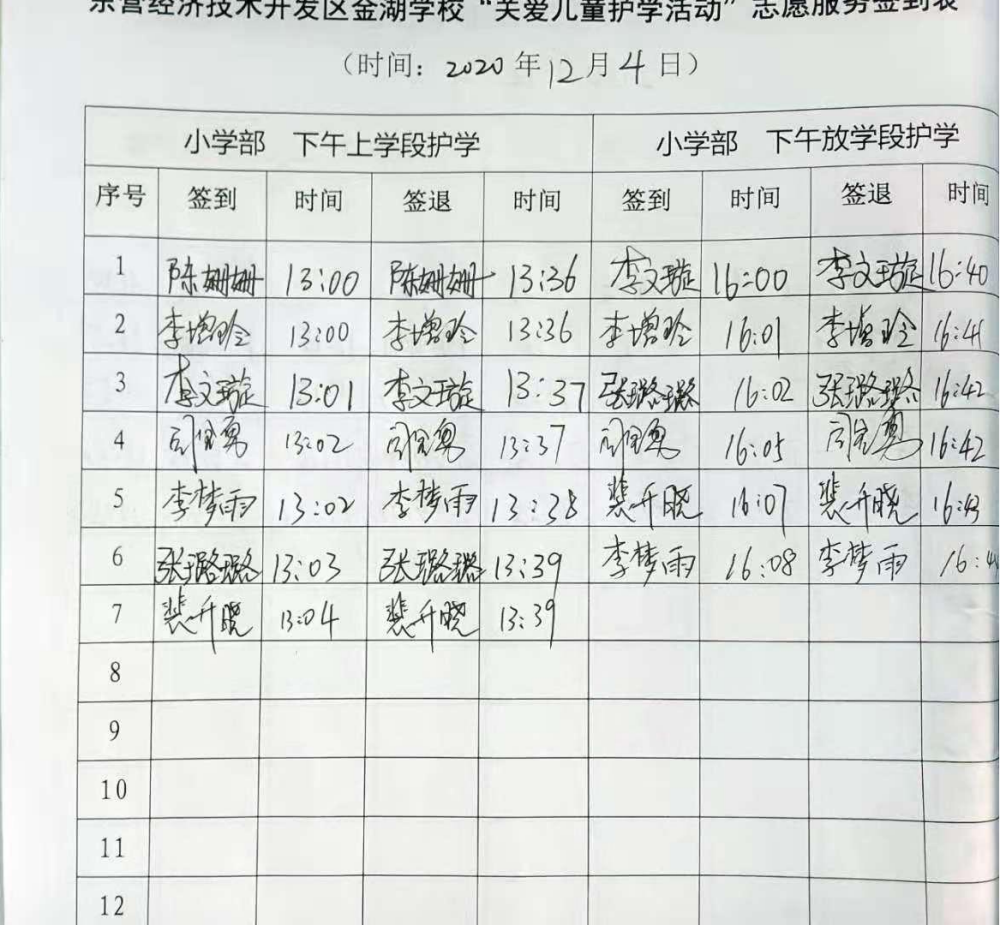 东营经济技术开发区金湖学校“关爱儿童护学活动”志愿服务签到表
（时间：2020年12月4日）
小学部 下午上学段护学 小学部 下午放学段护学
序号 签到 时间 签退 时间 签到 时间 签退 时间
1 陈姗姗 13:00 陈姗姗 13:36 李文璇 16:00 李文璇 16:40
2 李增玲 13:00 李增玲 13:36 李增玲 16:01 李增玲 16:41
3 李文璇 13:01 李文璇 13:37 张璐璐 16:02 张璐璐 16:42
4 13:02 13:37 16:05 16:42
5 李梦雨 13:02 李梦雨 13:38 裴升晓 16:07 裴升晓 16:43
6 张璐璐 13:03 张璐璐 13:39 李梦雨 16:08 李梦雨
7 裴升晓 13:04 裴升晓 13:39
8
9
10
11
12